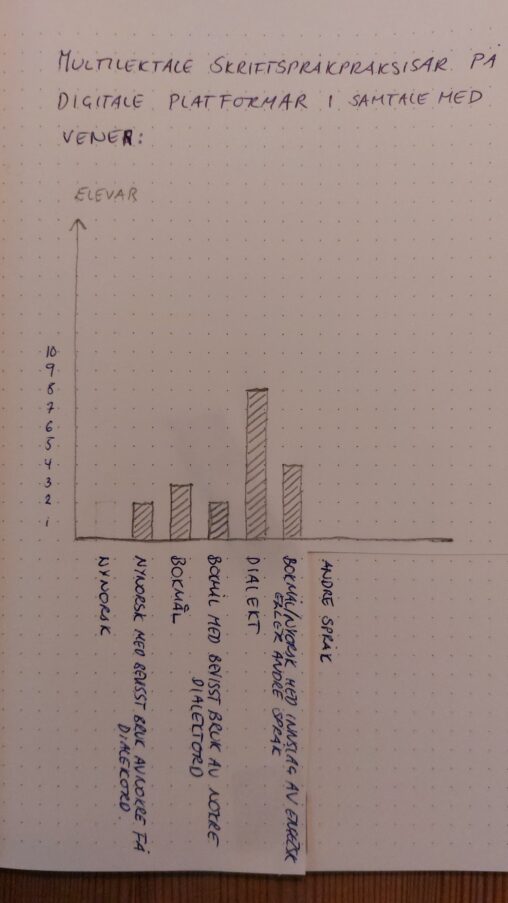 MULTILEKTALE SKRIFTSPRÅKPRAKSISAR PÅ
DIGITALE PLATTFORMAR I SAMTALE MED
VENER:
ELEVAR
10
9
8
7
6
5
4
3
2
1
NYNORSK
NYNORSK MED BEVISST BRUK AV NOKRE FÅ
DIALEKTORD.
BOKMÅL
BOKMÅL MED BEVISST BRUK AV NOKRE
DIALEKTORD
DIALEKT
BOKMÅL/NYNORSK MED INNSLAG AV ENGELSK
ELLER ANDRE SPRÅK
ANDRE SPRÅK